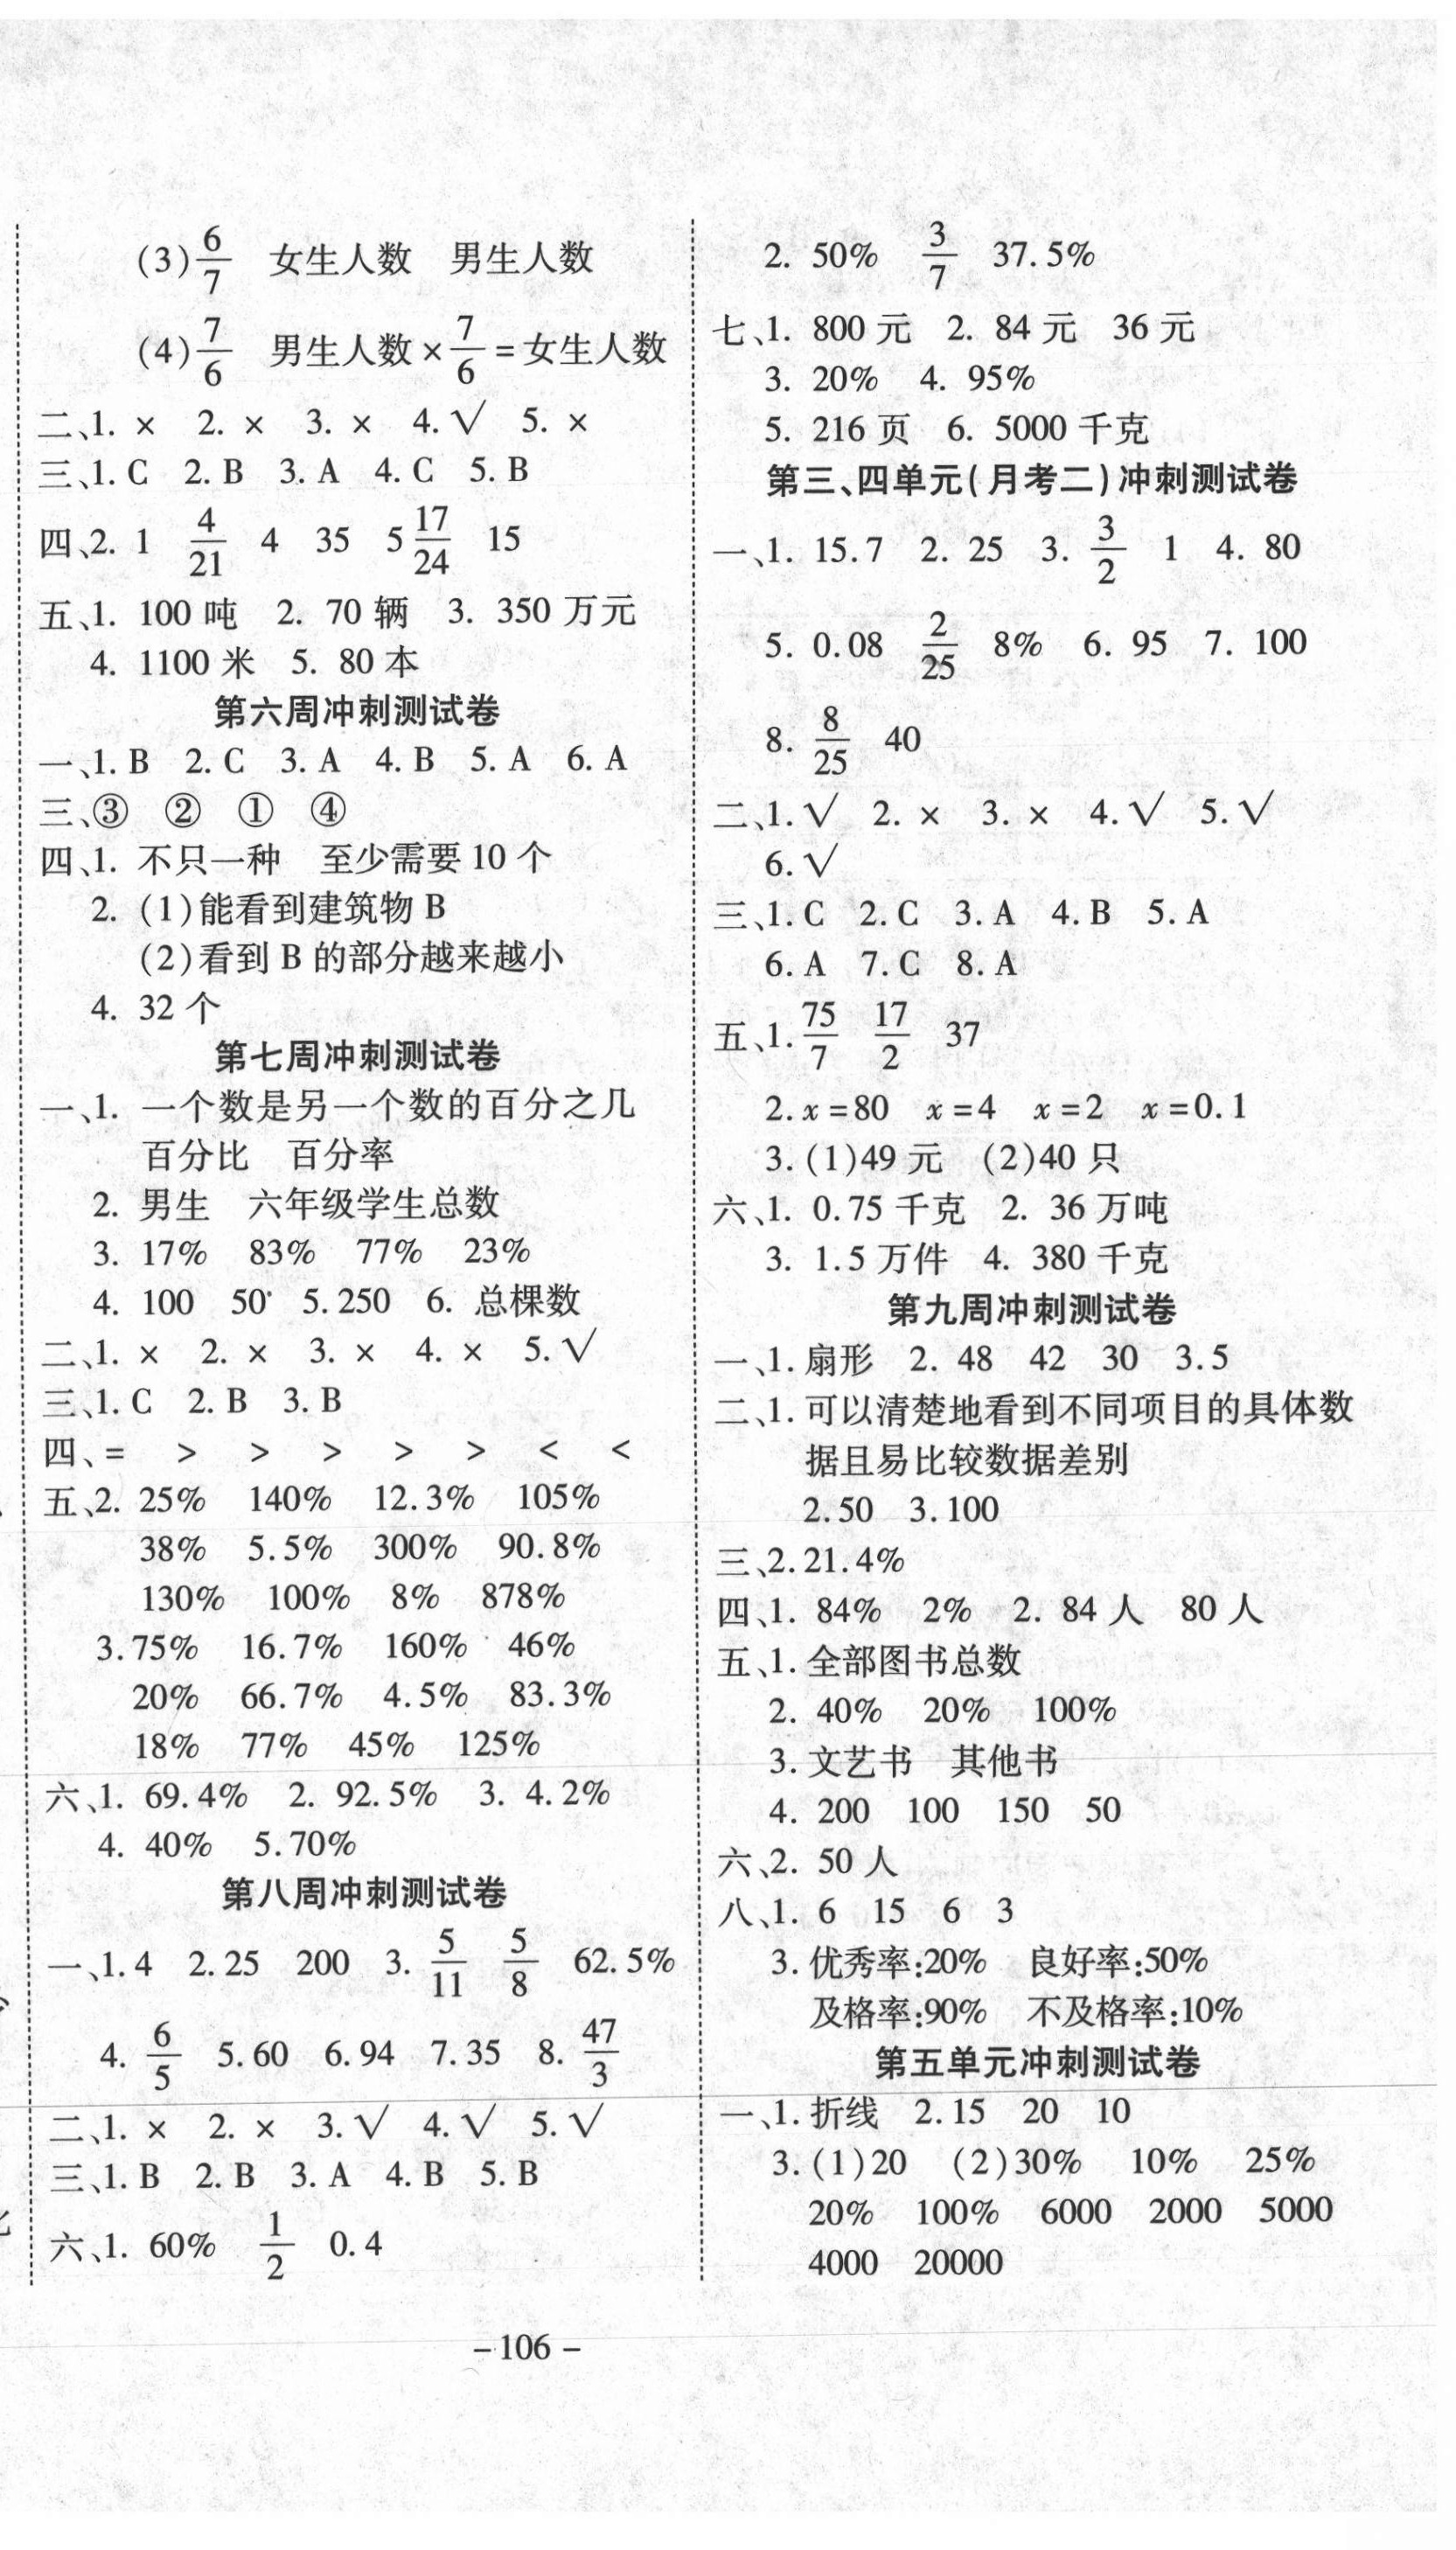 (3)6/7 女生人数 男生人数
(4)7/6 男生人数×7/6=女生人数
二、1. × 2. × 3. × 4. √ 5. ×
三、1. C 2. B 3. A 4. C 5. B
四、2. 1 4/21 4 35 5 17/24 15
五、1. 100 吨 2. 70 辆 3. 350 万元
4. 1100 米 5. 80 本
第六周冲刺测试卷
一、1. B 2. C 3. A 4. B 5. A 6. A
三、③ ② ① ④
四、1. 不只一种 至少需要 10 个
2. (1)能看到建筑物 B
(2)看到 B 的部分越来越小
4. 32 个
第七周冲刺测试卷
一、1. 一个数是另一个数的百分之几
百分比 百分率
2. 男生 六年级学生总数
3. 17% 83% 77% 23%
4. 100 50 5. 250 6. 总棵数
二、1. × 2. × 3. × 4. × 5. √
三、1. C 2. B 3. B
四、= > > > > > < <
五、2. 25% 140% 12.3% 105%
38% 5.5% 300% 90.8%
130% 100% 8% 878%
3. 75% 16.7% 160% 46%
20% 66.7% 4.5% 83.3%
18% 77% 45% 125%
六、1. 69.4% 2. 92.5% 3. 4.2%
4. 40% 5. 70%
第八周冲刺测试卷
一、1. 4 2. 25 200 3. 5/11 5/8 62.5%
4. 6/5 5. 60 6. 94 7. 35 8. 47/3
二、1. × 2. × 3. √ 4. √ 5. √
三、1. B 2. B 3. A 4. B 5. B
六、1. 60% 1/2 0.4
2. 50% 3/7 37.5%
七、1. 800 元 2. 84 元 36 元
3. 20% 4. 95%
5. 216 页 6. 5000 千克
第三、四单元(月考二)冲刺测试卷
一、1. 15.7 2. 25 3. 3/2 1 4. 80
5. 0.08 2/25 8% 6. 95 7. 100
8. 8/25 40
二、1. √ 2. × 3. × 4. √ 5. √
6. √
三、1. C 2. C 3. A 4. B 5. A
6. A 7. C 8. A
五、1. 75/7 17/2 37
2. x=80 x=4 x=2 x=0.1
3. (1)49 元 (2)40 只
六、1. 0.75 千克 2. 36 万吨
3. 1.5 万件 4. 380 千克
第九周冲刺测试卷
一、1. 扇形 2. 48 42 30 3. 5
二、1. 可以清楚地看到不同项目的具体数
据且易比较数据差别
2. 50 3. 100
三、2. 21.4%
四、1. 84% 2% 2. 84 人 80 人
五、1. 全部图书总数
2. 40% 20% 100%
3. 文艺书 其他书
4. 200 100 150 50
六、2. 50 人
八、1. 6 15 6 3
3. 优秀率:20% 良好率:50%
及格率:90% 不及格率:10%
第五单元冲刺测试卷
一、1. 折线 2. 15 20 10
3. (1)20 (2)30% 10% 25%
20% 100% 6000 2000 5000
4000 20000
-106-